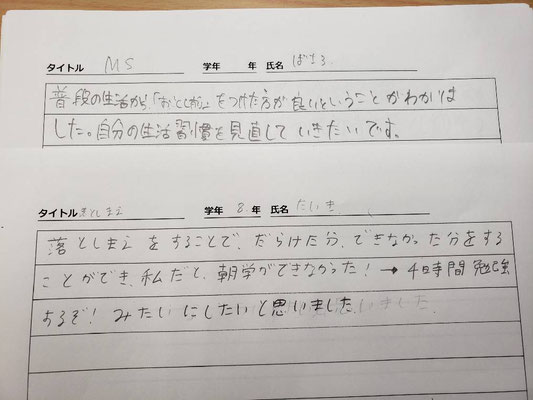 タイトル MS 学年 年 氏名 ばまる
普段の生活から「おとしまえ」をつけた方が良いということがわかりま
した。自分の生活習慣を見直していきたいです。
タイトル 落としまえ 学年 2 年 氏名 たいき
落としまえをすることで、だらけた分、できなかった分をする
ことができ、私だと、朝学ができなかった!→4日時間勉強
するぞ!みたいにしたいと思いました。